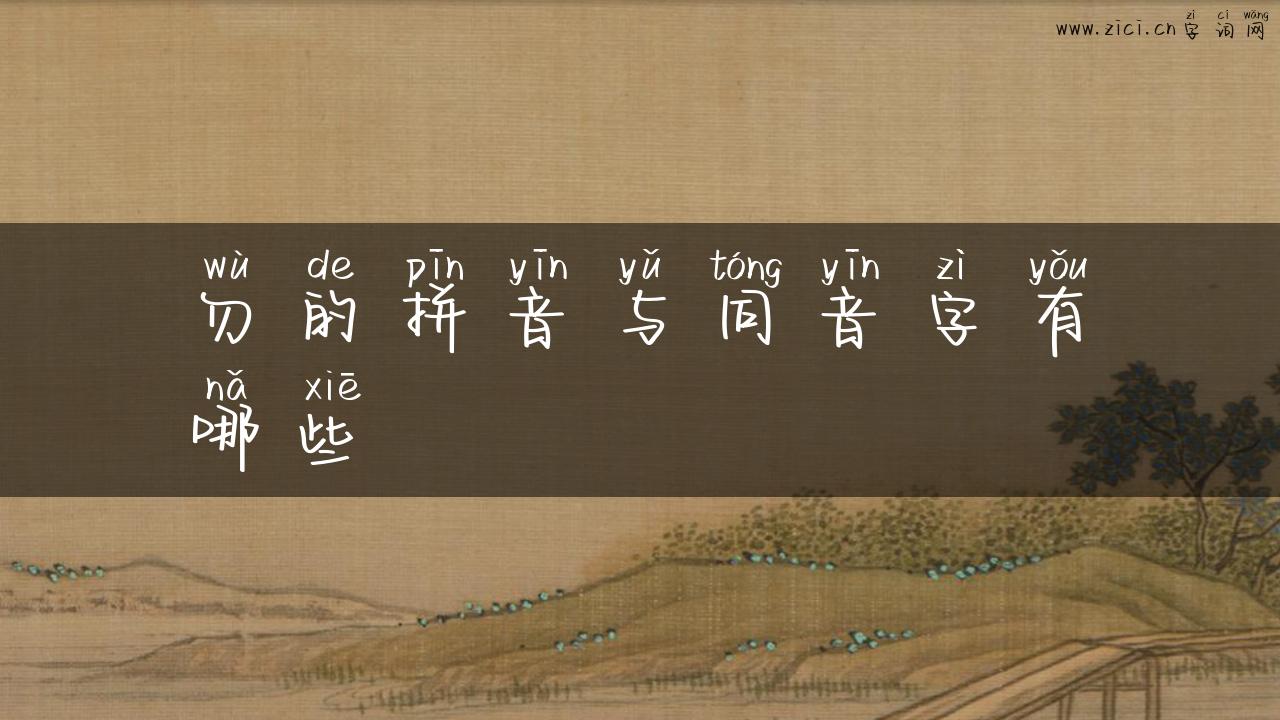 zì cí wǎng
www.zici.cn字词网
wù de pīn yīn yǔ tóng yīn zì yǒu
勿的拼音与同音字有
nǎ xiē
哪些